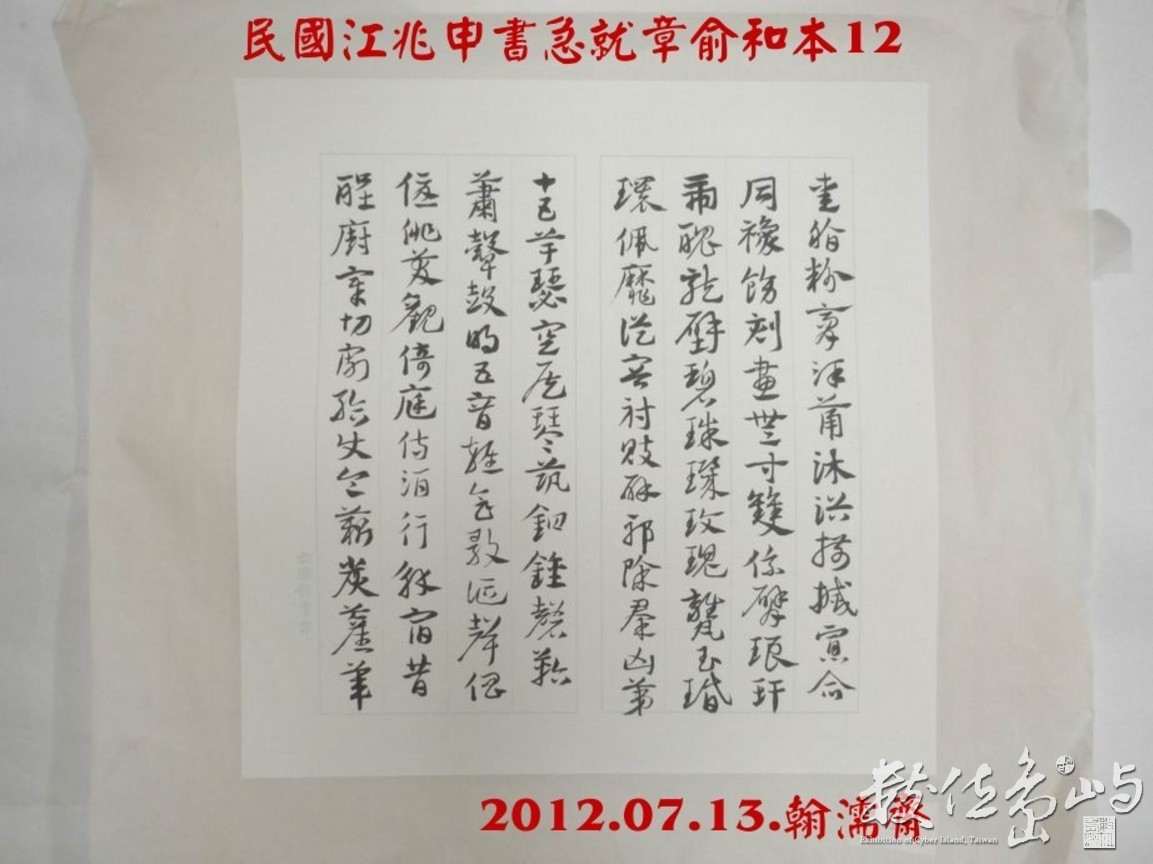 民國江兆申書急就章俞和本12
脂粉膏澤筩沐浴揃搣寡合
同襐飾刻畫無等雙係臂琅玕
虎魄龍璧碧珠璣玫瑰甕玉
環佩靡從容射魃辟邪除羣凶第
十五竽瑟空侯琴筑鉦鍾磬鞀
蕭鼙鼓鳴五音雜會歌謳聲倡
優俳笑觀倚庭侍酒行觴宿昔
酲廚宰切割給使令薪炭萑葦
2012.07.13.翰濡齋
數位島嶼
Exhibition of Cyber Island, Taiwan